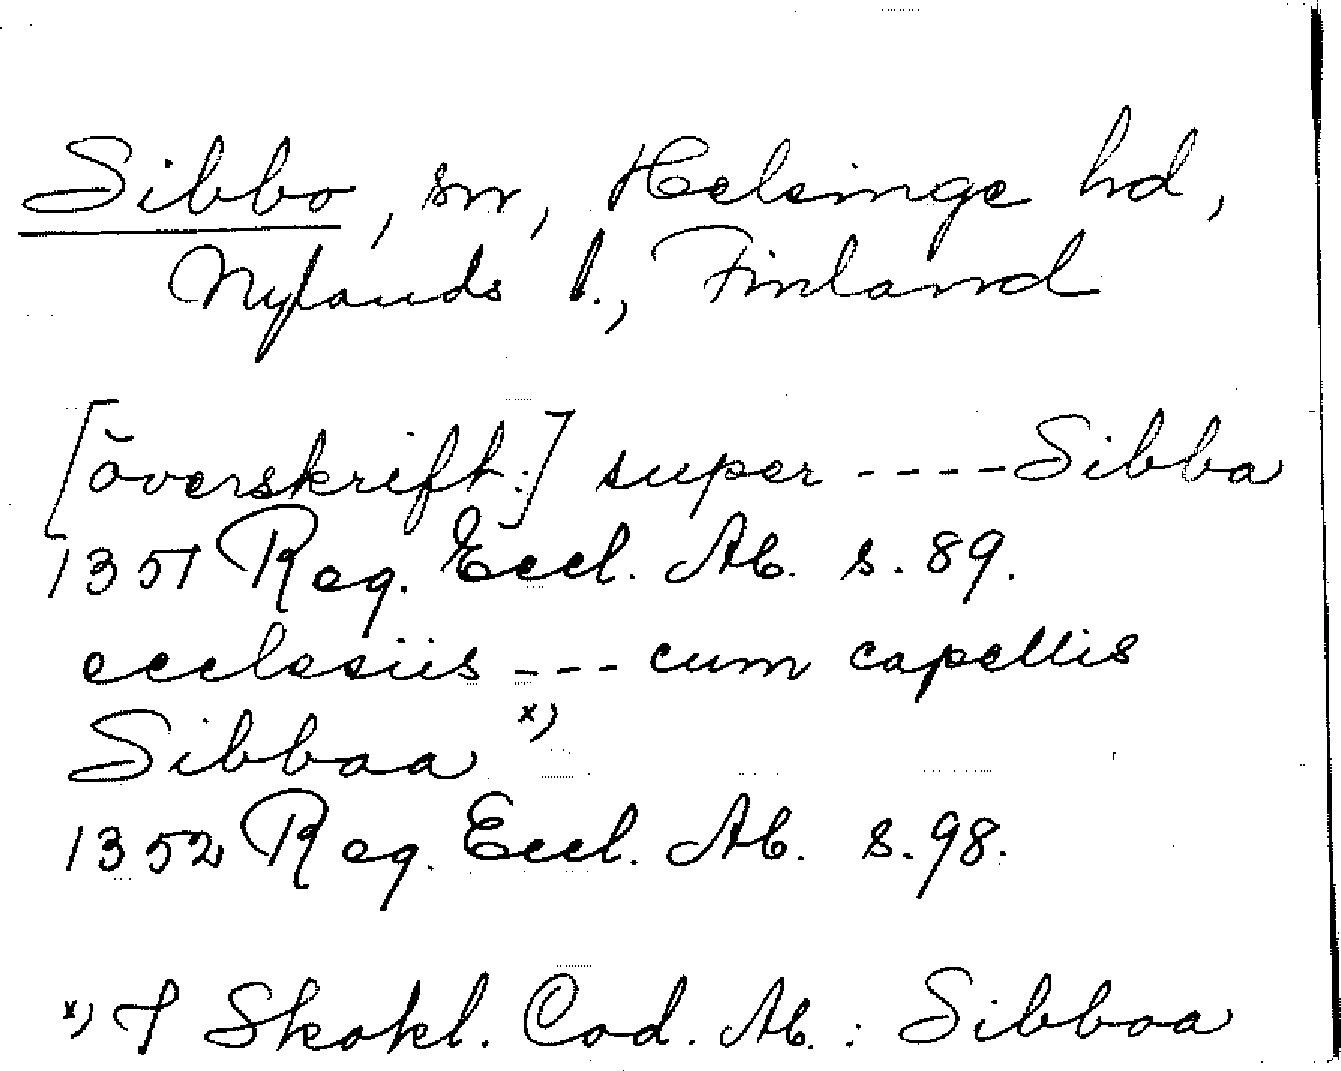 Sibbo, sn, Helsinge hd,
Nylands l., Finland
[överskrift:] super ----Sibba
1351 Reg. Eccl. Ab. s. 89.
ecclesiis --- cum capellis
Sibbaa x)
1352 Reg. Eccl. Ab. s. 98.
x) I Skokl. Cod. Ab.: Sibboa